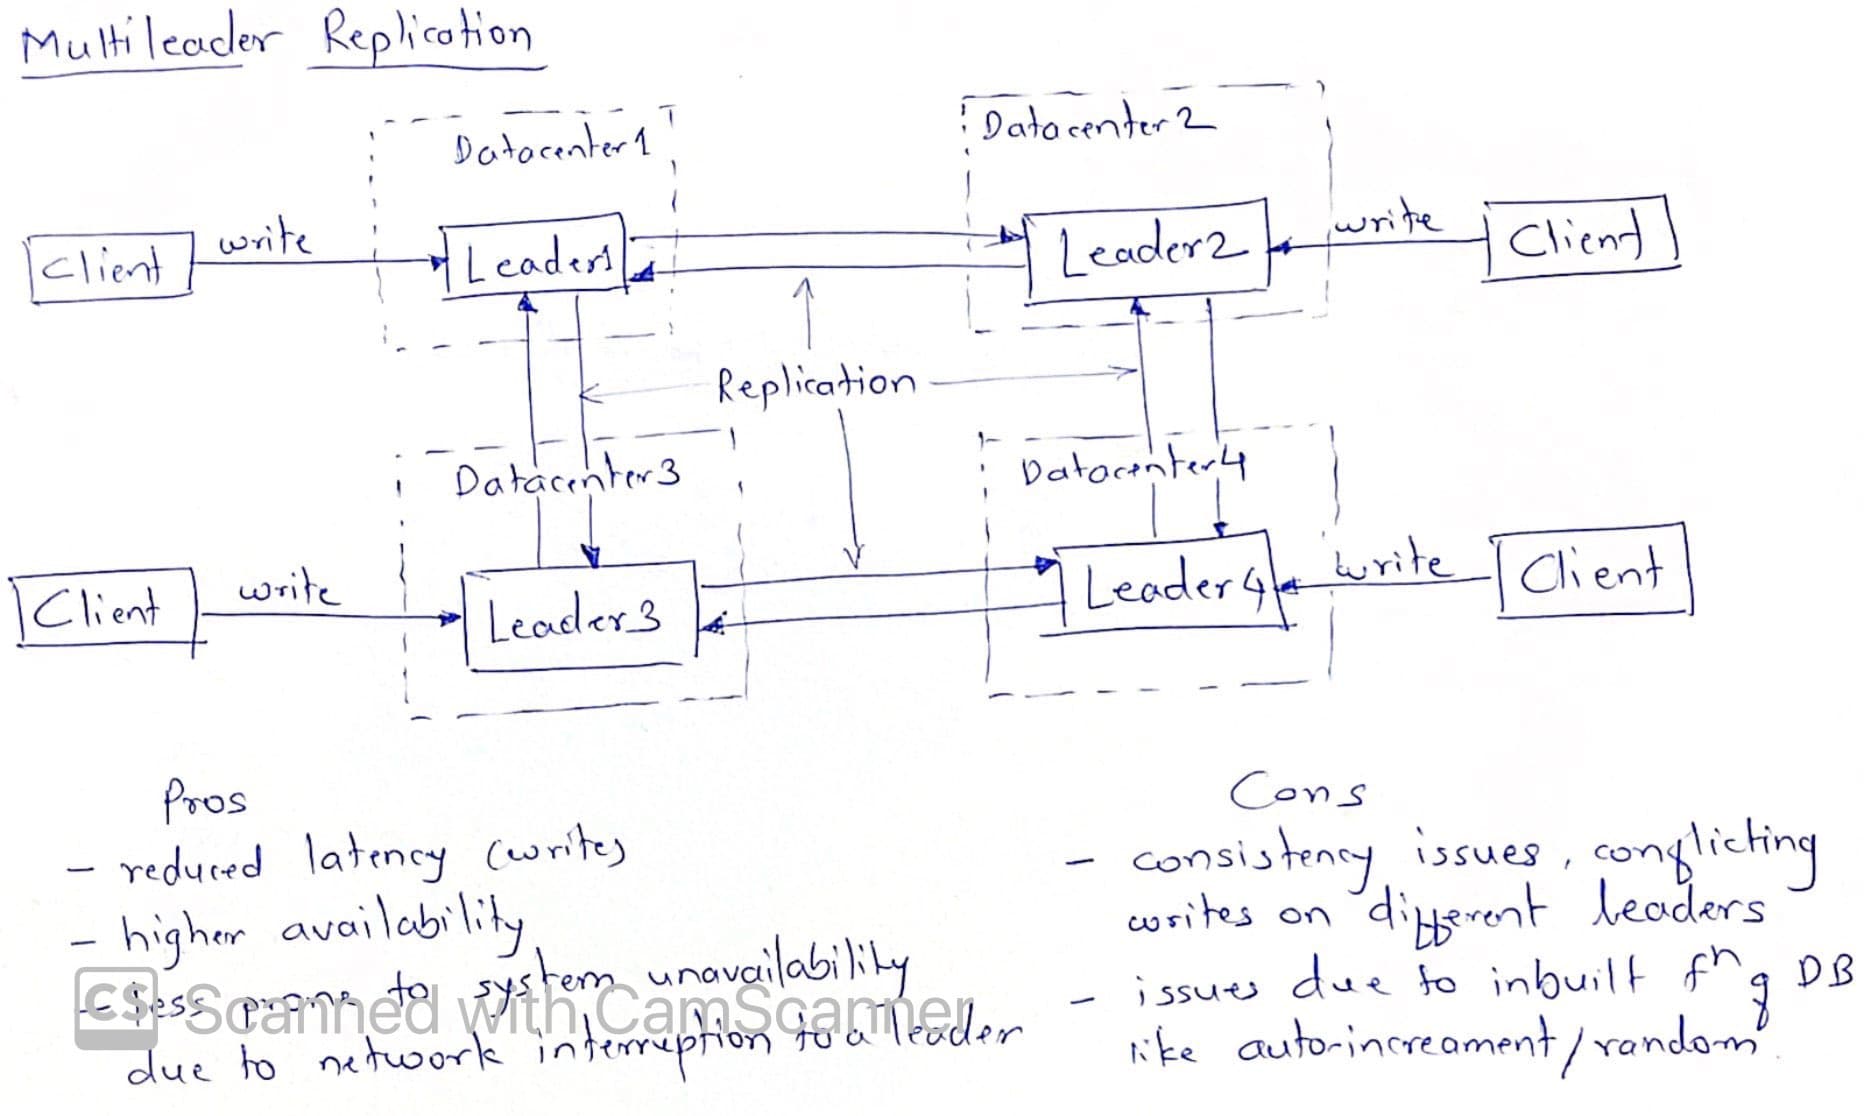 Multileader Replication
Datacenter1
Datacenter2
Client
write
Leader1
Leader2
write
Client
Replication
Datacenter3
Datacenter4
Client
write
Leader3
Leader4
write
Client
Pros
- reduced latency (writes)
- higher availability
- less prone to system unavailability
due to network interruption to a leader
Cons
- consistency issues, conflicting
writes on different leaders
- issues due to inbuilt fn of DB
like auto-increament/random.
CS Scanned with CamScanner